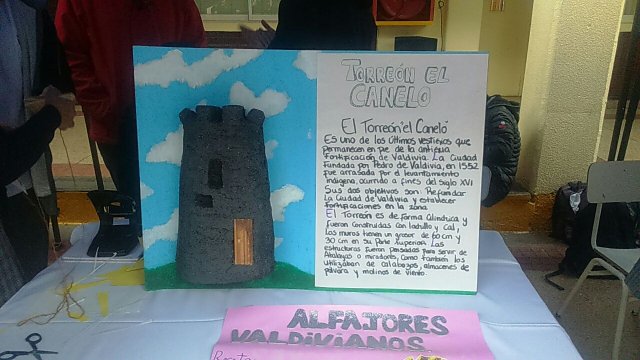 TORREÓN EL
CANELO
El Torreón "el Canelo"
Es uno de los últimos vestigios que
permanecen en pie de la antigua
Fortificación de Valdivia La Ciudad
Fundada por Pedro de Valdivia, en 1552
fue arrasada por el levantamiento
indigena ocurrido a fines del siglo XVI
Sus dos objetivos son: Refundar
La Ciudad de Valdivia y establecer
fortificaciones en la zona
El Torreón es de forma Cilíndrica y
fueron Construidas con ladrillo y Cal,
Los muros tienen un grosor de 60 cm y
30 cm en su Parte superior. Las
estructuras fueron pensadas para servir de
Atalayas o miradores, Como también las
Utilizaban de calabozos, almacenes de
pólvora y molinos de viento.
ALFAJORES
VALDIVIANOS